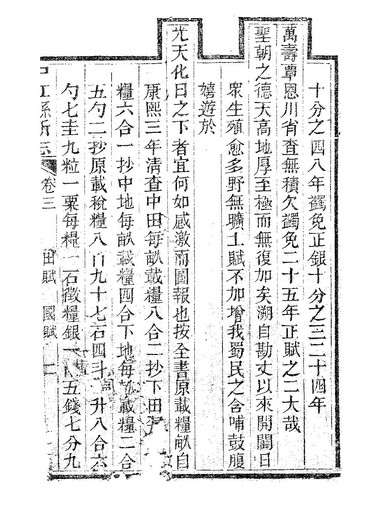 十分之四八年蠲免正銀十分之三二十四年
萬壽覃恩川省查無積欠蠲免二十五年正賦之二大哉
聖朝之德天高地厚至極而無復加矣溯自勘丈以來開闢日
眾生殖愈多野無曠土賦不加增我蜀民之含哺鼓腹
嬉遊於
光天化日之下者宜何如感激而圖報也按全書原載糧畝自
康熙三年清查中田每畝載糧八合二抄下田每
糧六合一抄中地每畝載糧四合下地每畝載糧二合
五勺二抄原載稅糧八百九十七石四斗升八合六
勺七圭九粒一粟每糧一石徵糧銀一兩五錢七分九
中江縣新志 卷三 田賦 國賦 二